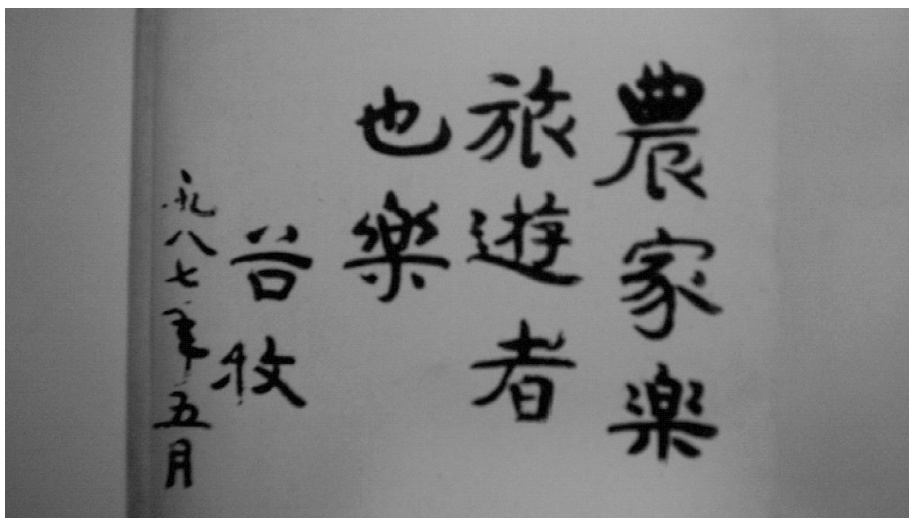 農家楽
旅遊者
也樂
谷牧
一九八七年五月